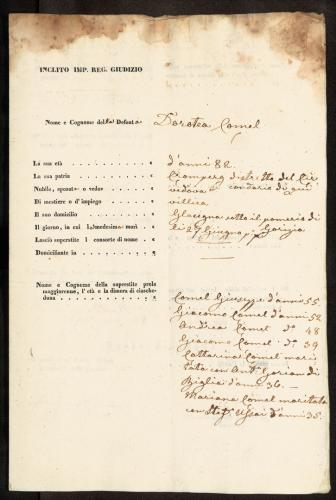 INCLITO IMP. REG. GIUDIZIO
Nome e Cognome della Defonta Dorotea Comel
La sua età d'anni 82.
La sua patria distretto del
Nubile, sposata o vedova vedova
Di mestiere o d'impiego villica
Il suo domicilio sotto il pomerio di
Il giorno, in cui la medesima morì li 27 Giugno Gorizia
Lasciò superstite il consorte di nome
Domiciliante in
Nome e Cognome della superstite prole
maggiorenne, l'età e la dimora di ciasche-
duna
Comel Giuseppe d'anni 55.
Giacomo Comel d'anni 52
Andrea Comel d° 48
Giacomo Comel d° 39
Catharina Comel mari
tata con Ant° Gorian di
Biglia d'anni 36.
Mariana Comel maritata
con d'anni 35.